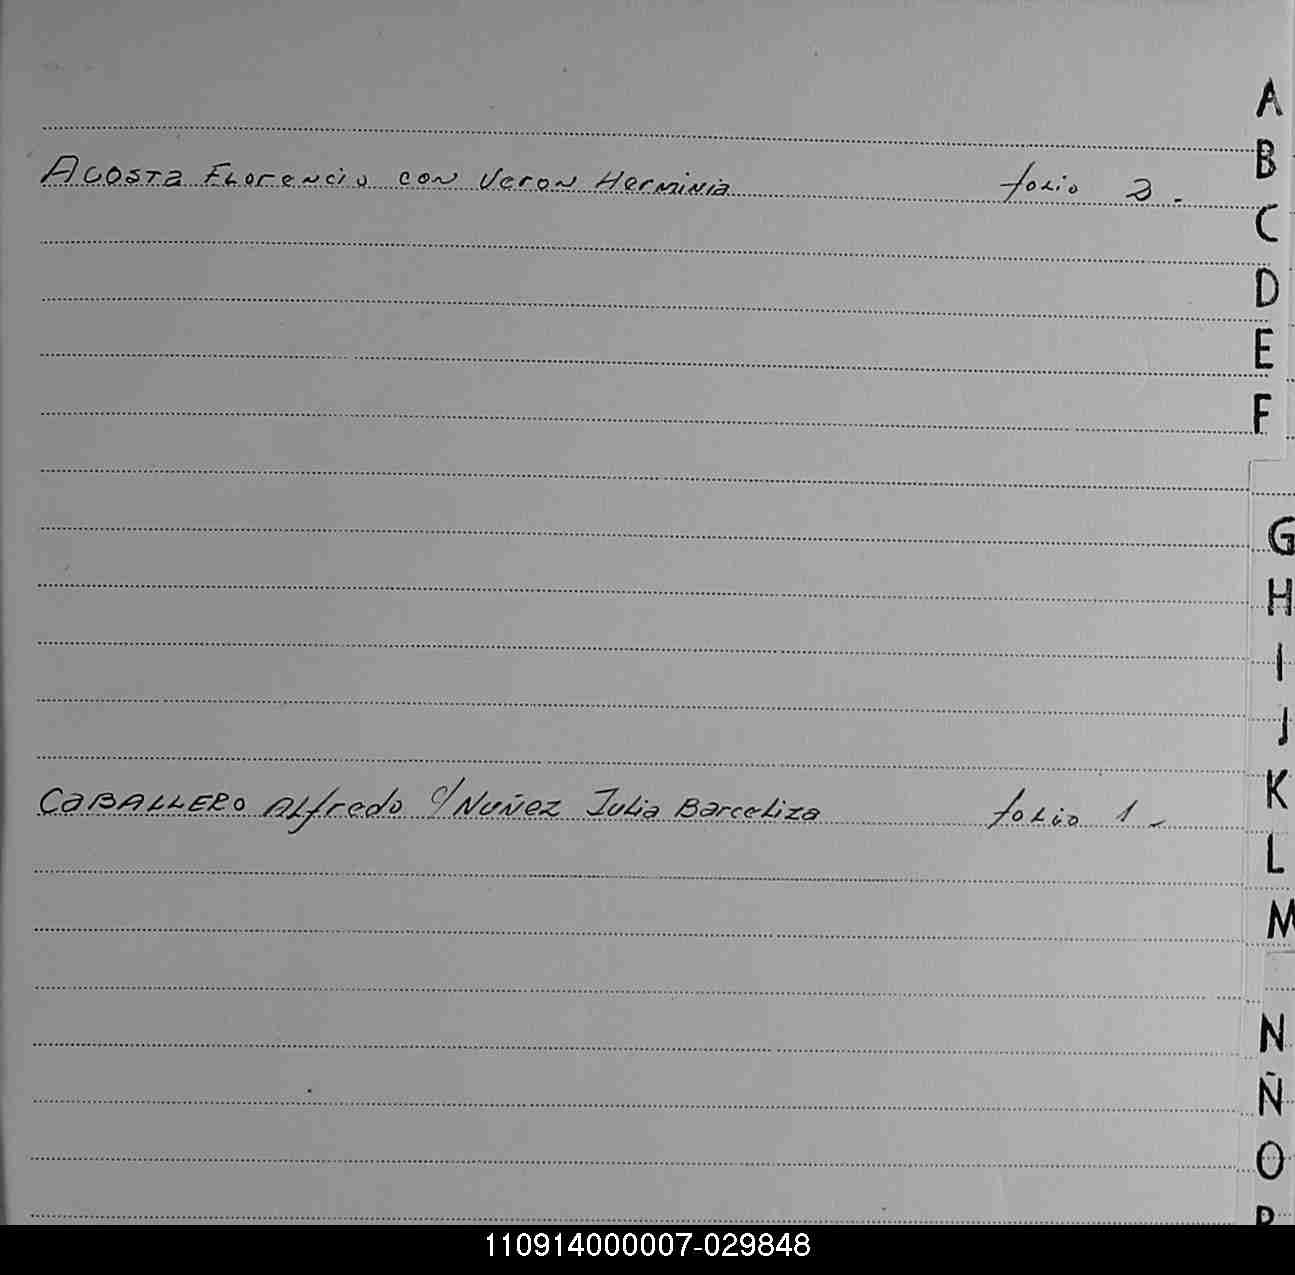 A
B
Acosta Florencio con Veron Herminia folio 3.
C
D
E
F
G
H
I
J
K
Caballero Alfredo c/ Nuñez Julia Barceliza folio 1-
L
M
N
Ñ
O
P
110914000007-029848